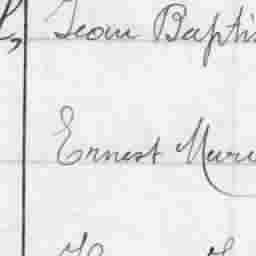 Jean Baptis
Ernest Mari